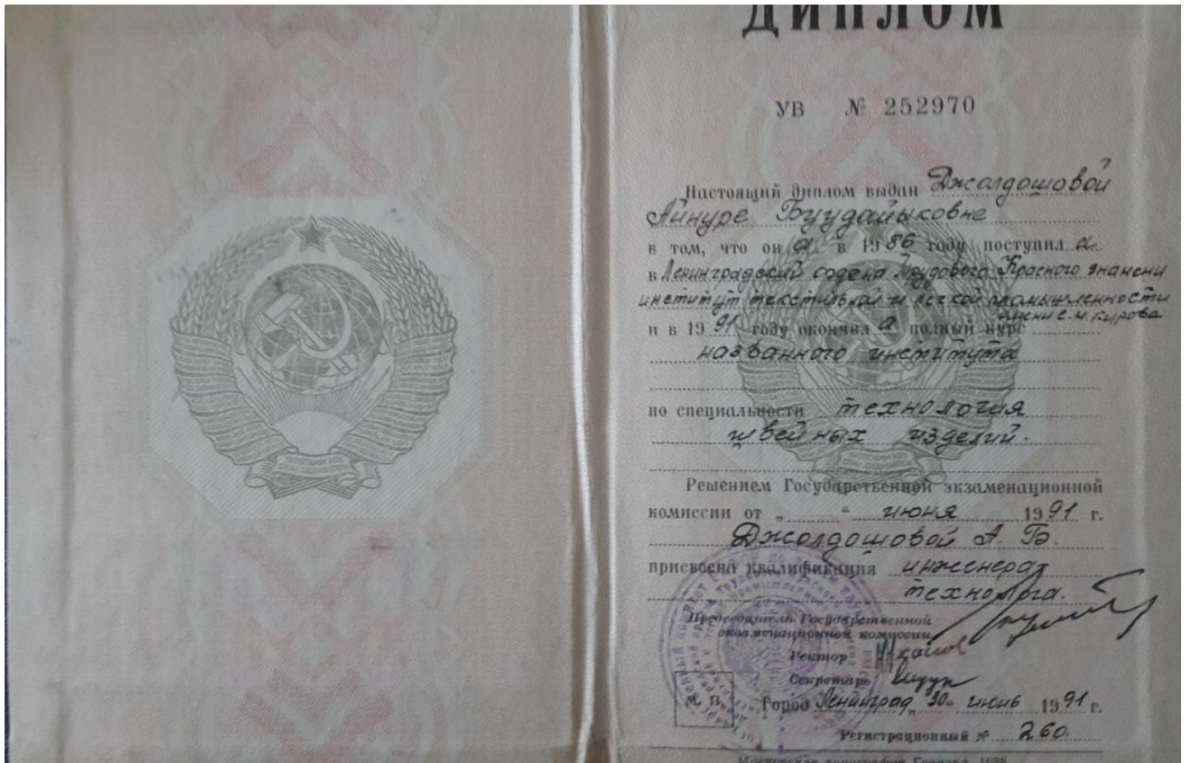 ДИПЛОМ
УВ № 252970
Настоящий диплом выдан Джолдошовой
Айнуре Буудайыковне
в том, что он а в 1986 году поступил а
в Ленинградский ордена Трудового Красного знамени
институт текстильной и легкой промышленности
имени С. М. Кирова
и в 1991 году окончил а полный курс
названного института
по специальности технология
швейных изделий.
Решением Государственной экзаменационной
комиссии от „ “ июня 1991 г.
Джолдошовой А. Б.
присвоена квалификация инженера
технолога.
Председатель Государственной
экзаменационной комиссии
Ректор
Секретарь
Город Ленинград „30“ июнь 1991 г.
Регистрационный № 260
Московская типография Гознака.